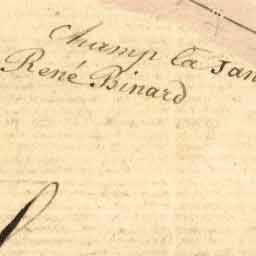 Champ la Jan
René Binard